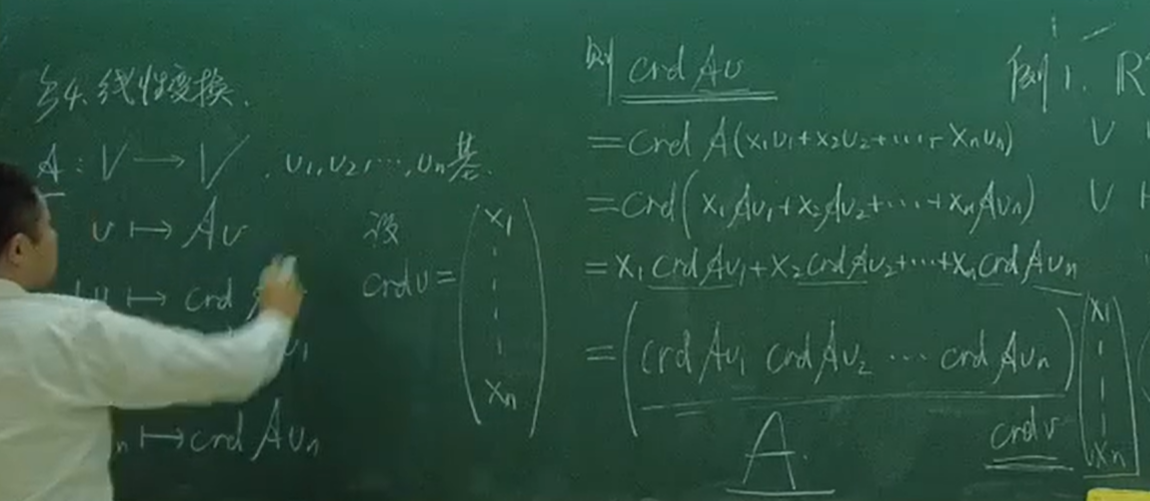 §4. 线性变换.
A : V → V , v₁, v₂, ⋯, vₙ 基.
v ↦ Av
↦ crd
v₁
ₙ ↦ crd Avₙ
设
crd v = (x₁ ⋮ xₙ)
则 crd Av
= crd A(x₁v₁+x₂v₂+⋯+xₙvₙ)
= crd(x₁Av₁+x₂Av₂+⋯+xₙAvₙ)
= x₁crd Av₁+x₂crd Av₂+⋯+xₙcrd Avₙ
= (crd Av₁ crd Av₂ ⋯ crd Avₙ)(x₁ ⋮ xₙ)
A. crd v
例1. R
v
v